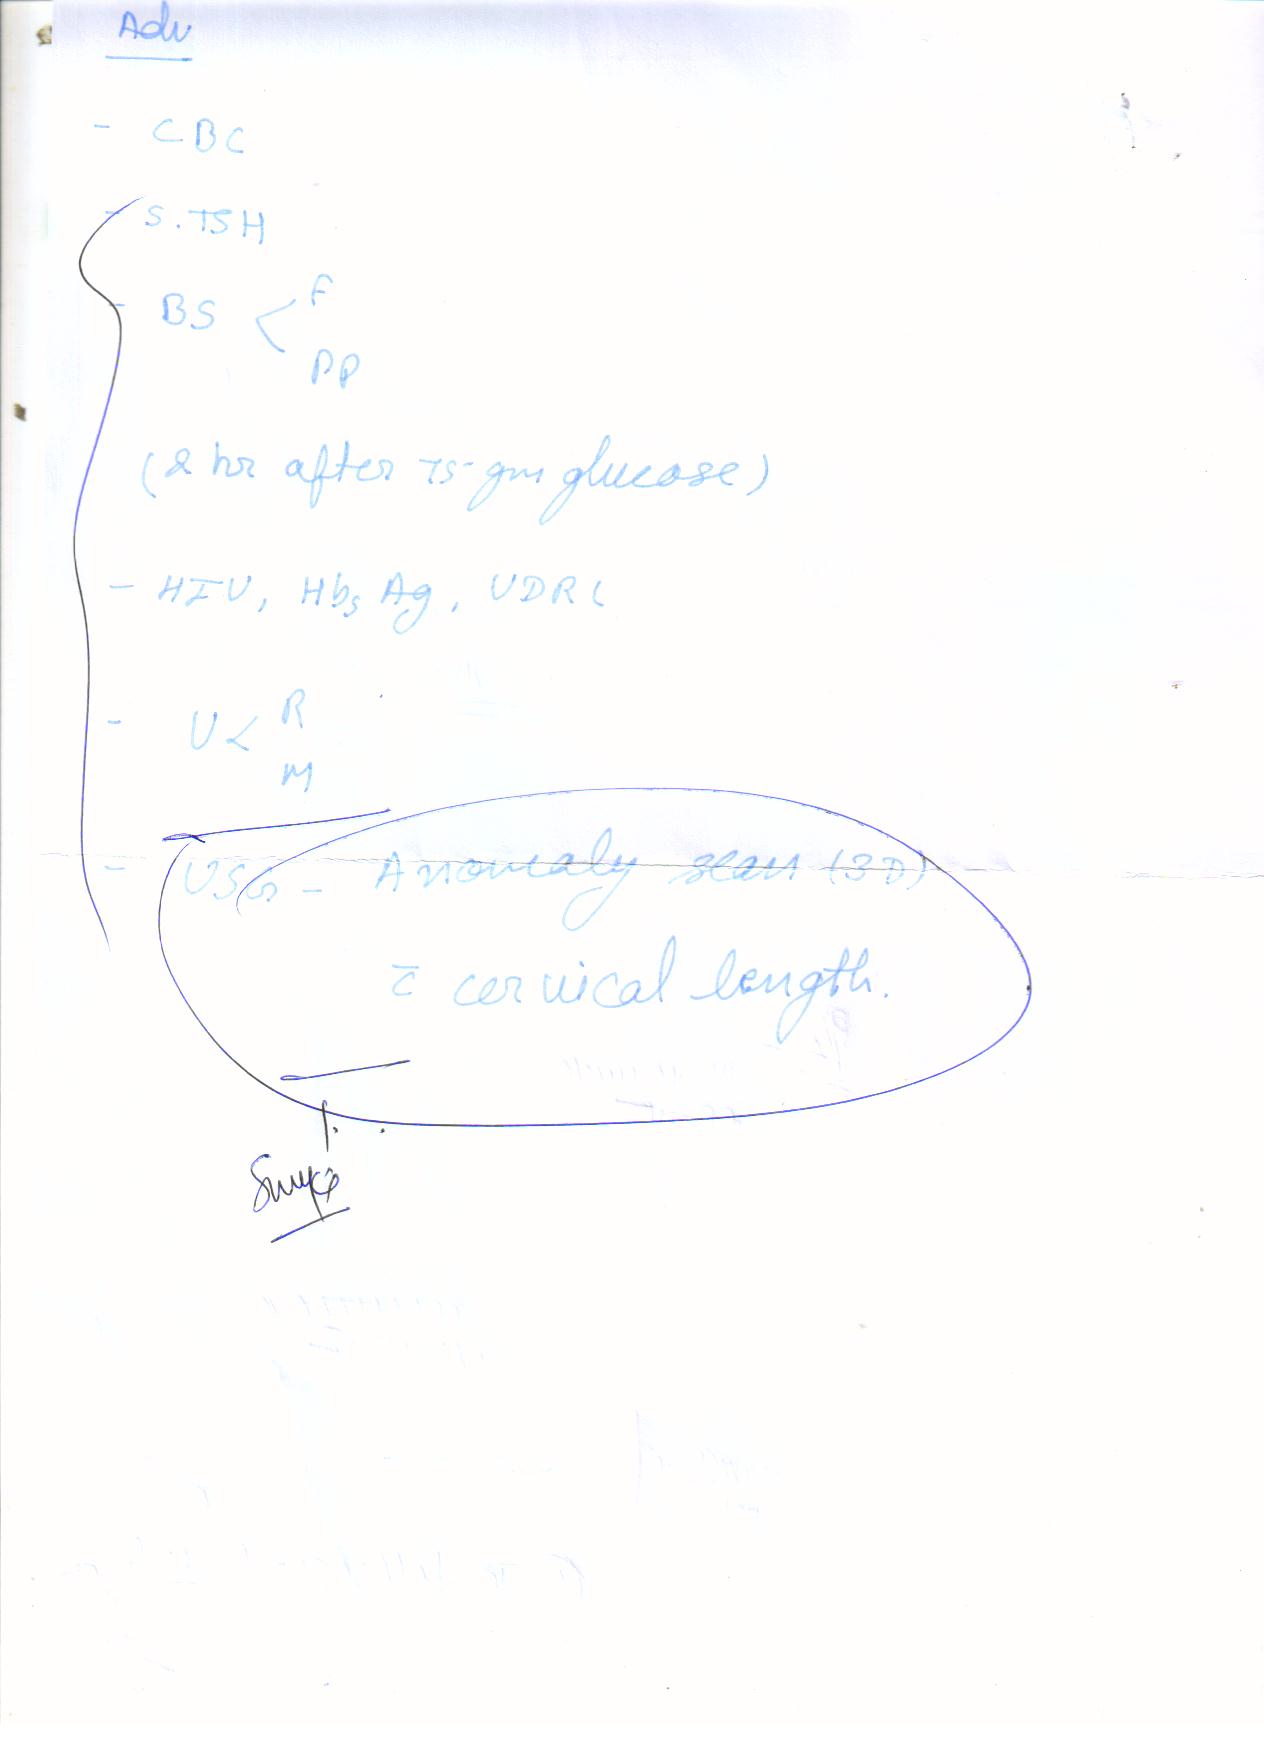 Adv
- CBC
- S. TSH
- BS < F
PP
(2 hr after 75 gm glucose)
- HIV, HbsAg, VDRL
- U < R
M
- USG - Anomaly scan (3D)
c̄ cervical length.